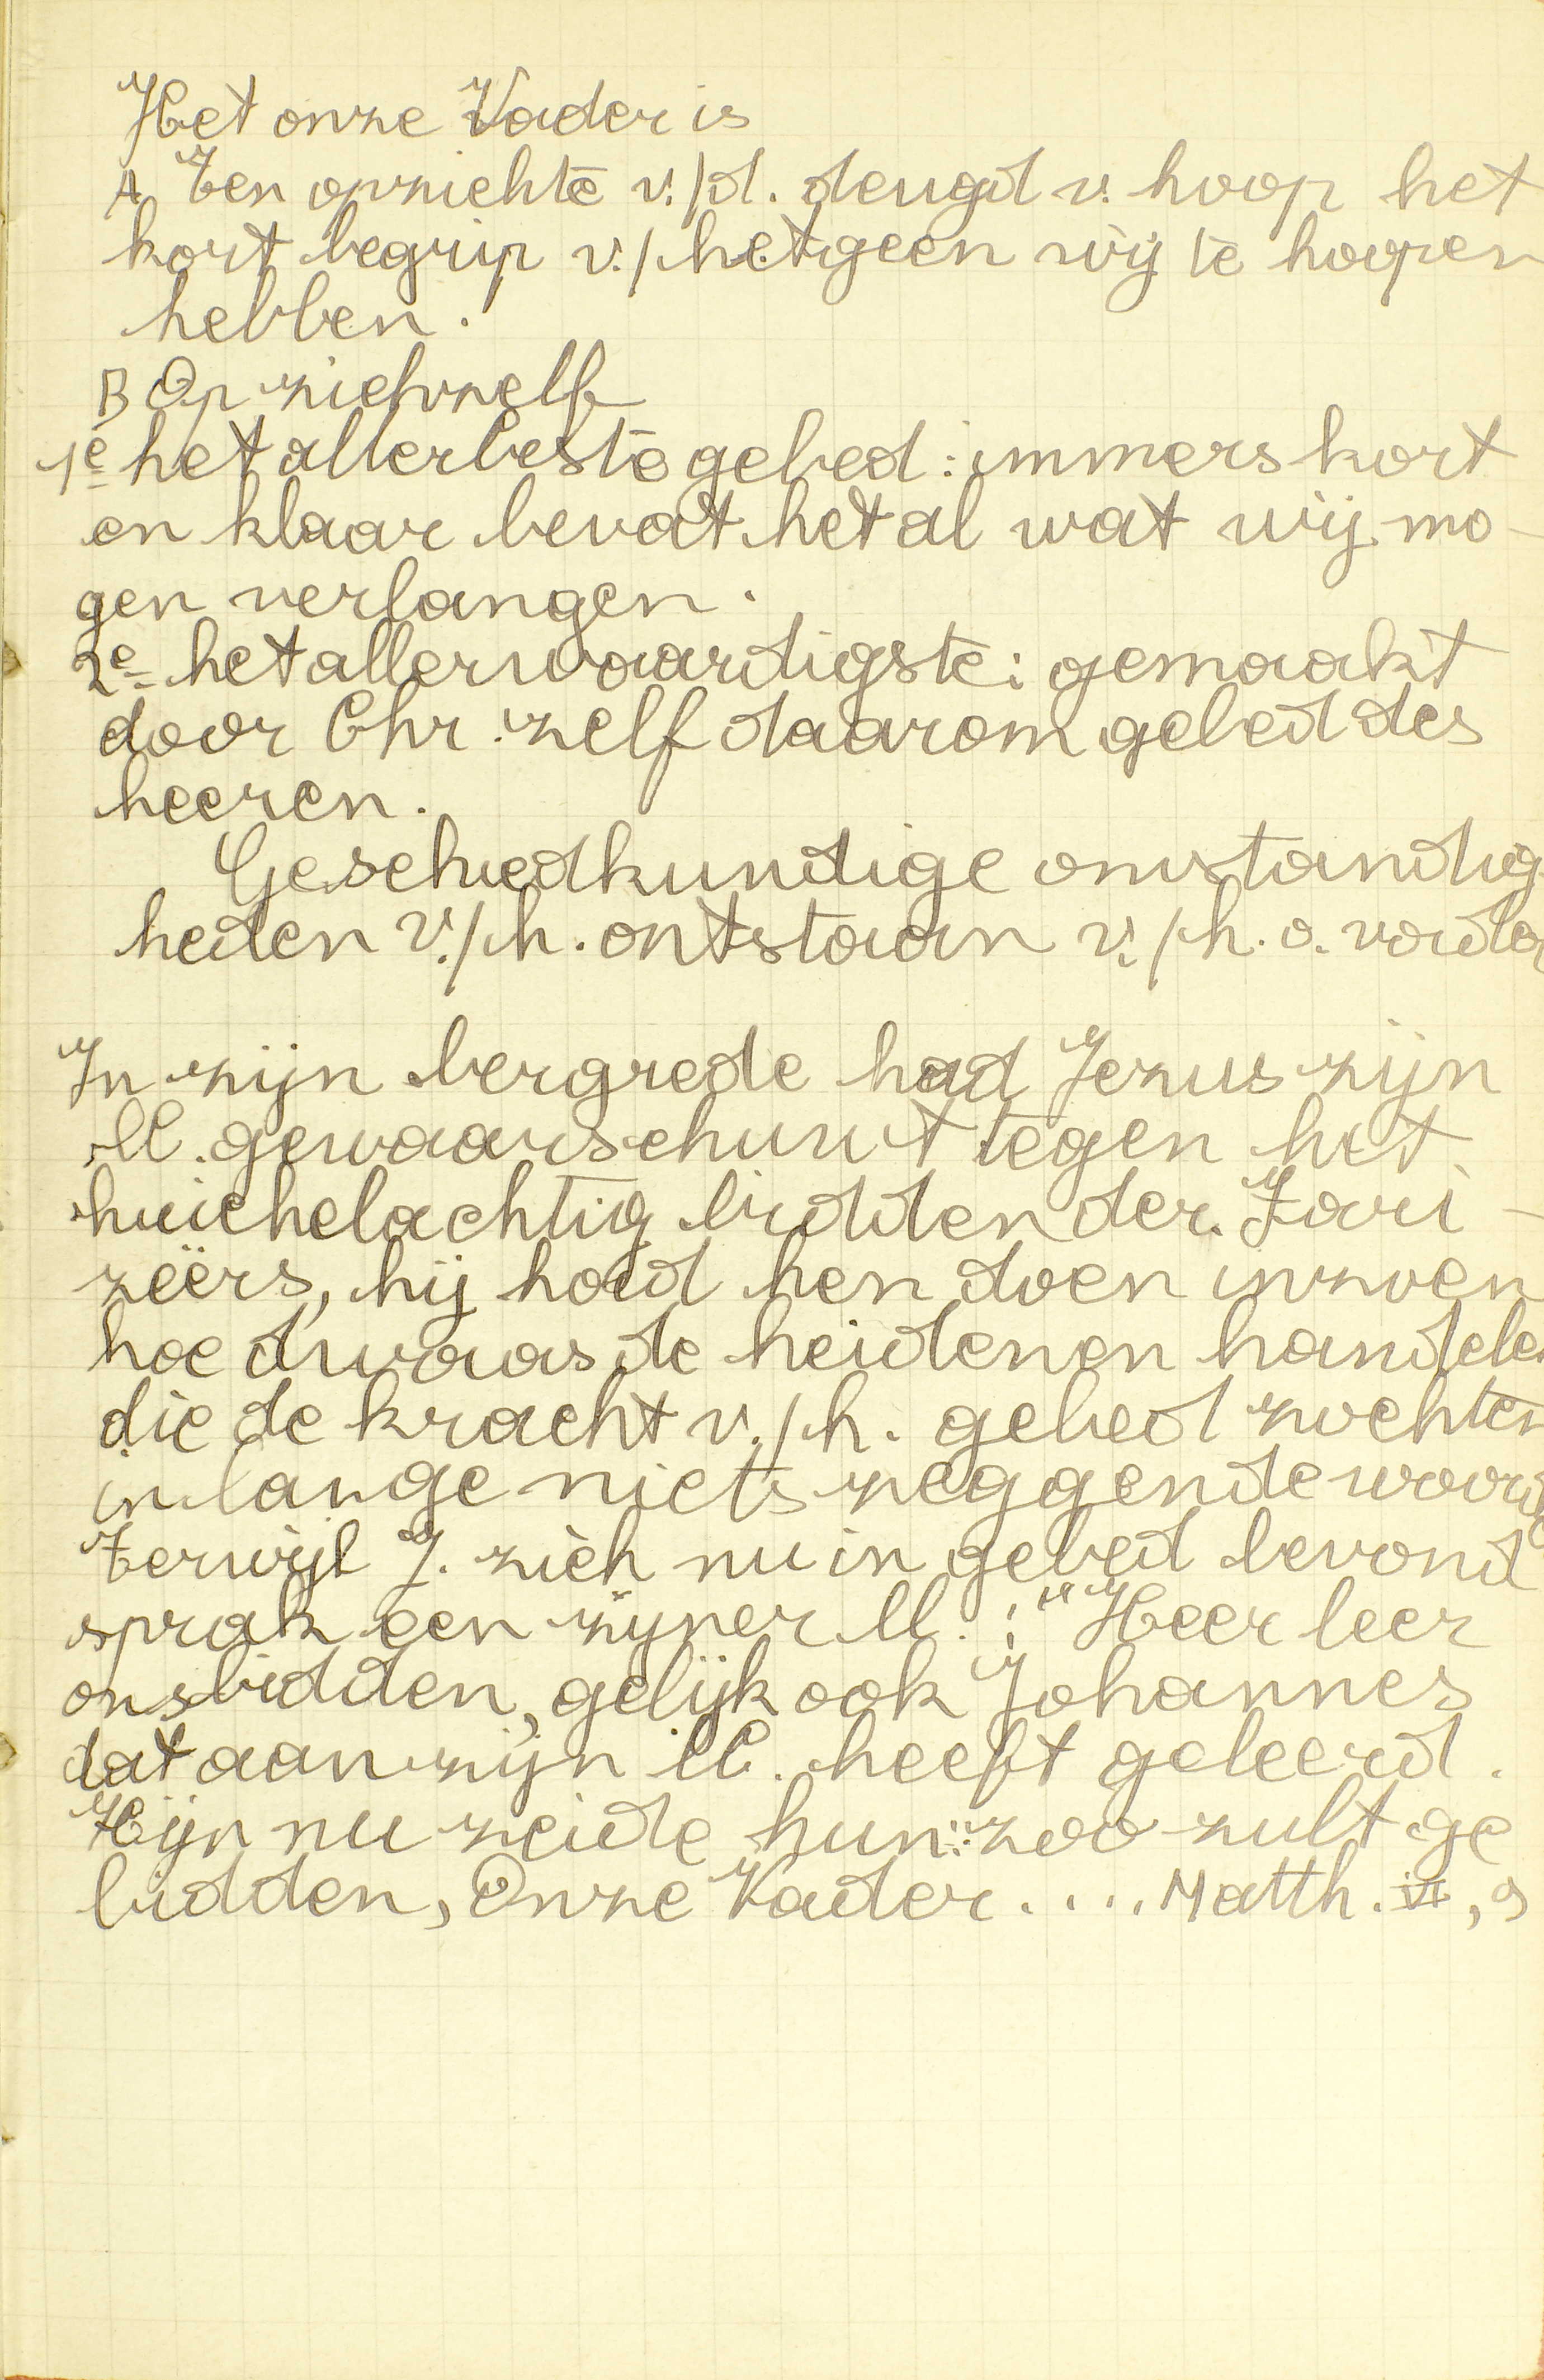 Het onze Vader is
A Ten opzichte v./d. deugd v. hoop het
kort begrip v./hetgeen wij te hoopen
hebben.
B Op zichzelf
1e het allerbeste gebed: immers kort
en klaar bevat het al wat wij mo-
gen verlangen.
2e het allerwaardigste: gemaakt
door Chr. zelf daarom gebed des
heeren.
Geschiedkundige omstandig-
heden v./h. ontstaan v./h. o. vader
In zijn bergrede had Jezus zijn
ll. gewaarschuwt tegen het
huichelachtig bidden der Fari-
zeërs, hij had hen doen inzien
hoe dwaas de heidenen handelen
die de kracht v./h. gebed zochten
in lange niets zeggende woord
Terwijl J. zich nu in gebed bevond
sprak een zijner ll.: "Heer leer
ons bidden, gelijk ook Johannes
dat aan zijn ll. heeft geleerd.
Hijn nu zeide hun: zoo zult ge
bidden, Onze Vader.... Matth. VI, 9